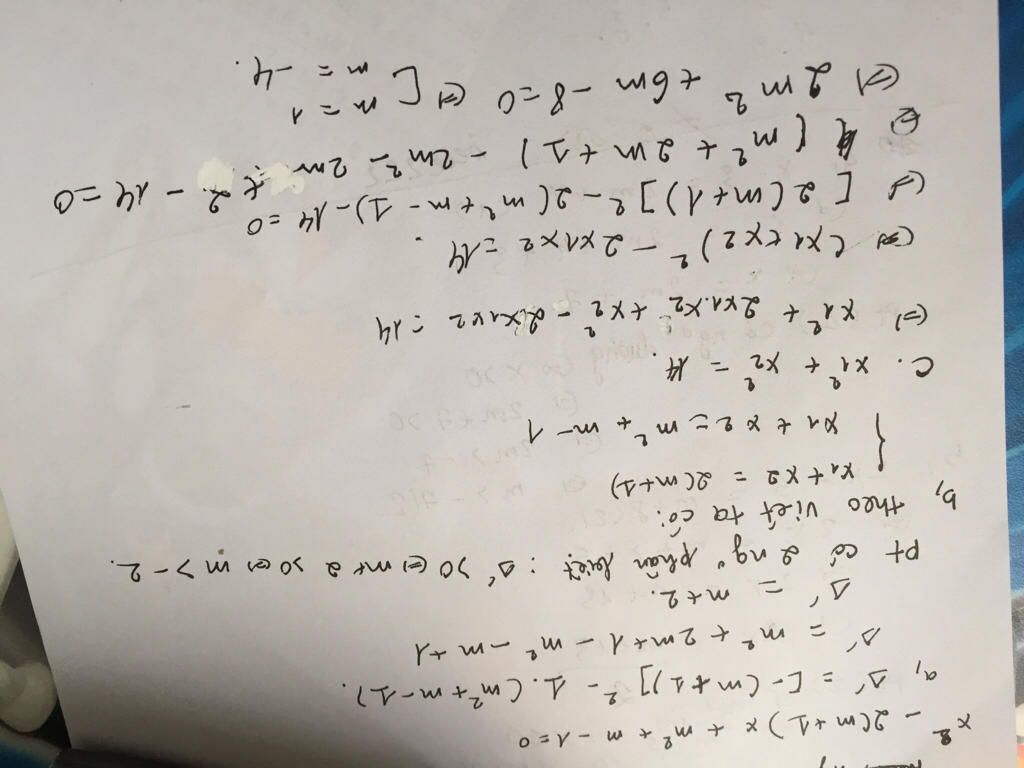 x² - 2(m+1)x + m² + m - 1 = 0
a, Δ' = [-(m+1)]² - 1.(m² + m - 1).
Δ' = m² + 2m + 1 - m² - m + 1
Δ' = m + 2.
pt có 2 ng° phân biệt : Δ' > 0 (=) m + 2 > 0 (=) m > -2.
b, theo viét ta có:
{ x1 + x2 = 2(m+1)
x1 + x2 = m² + m - 1
C. x1² + x2² = 14.
(=) x1² + 2x1.x2 + x2² - 2x1x2 = 14
(=) (x1 + x2)² - 2x1x2 = 14.
(=) [2(m+1)]² - 2(m² + m - 1) - 14 = 0
(=) 4(m² + 2m + 1) - 2m² - 2m + 2 - 14 = 0
(=) 2m² + 6m - 8 = 0 (=) [ m = 1
m = -4.